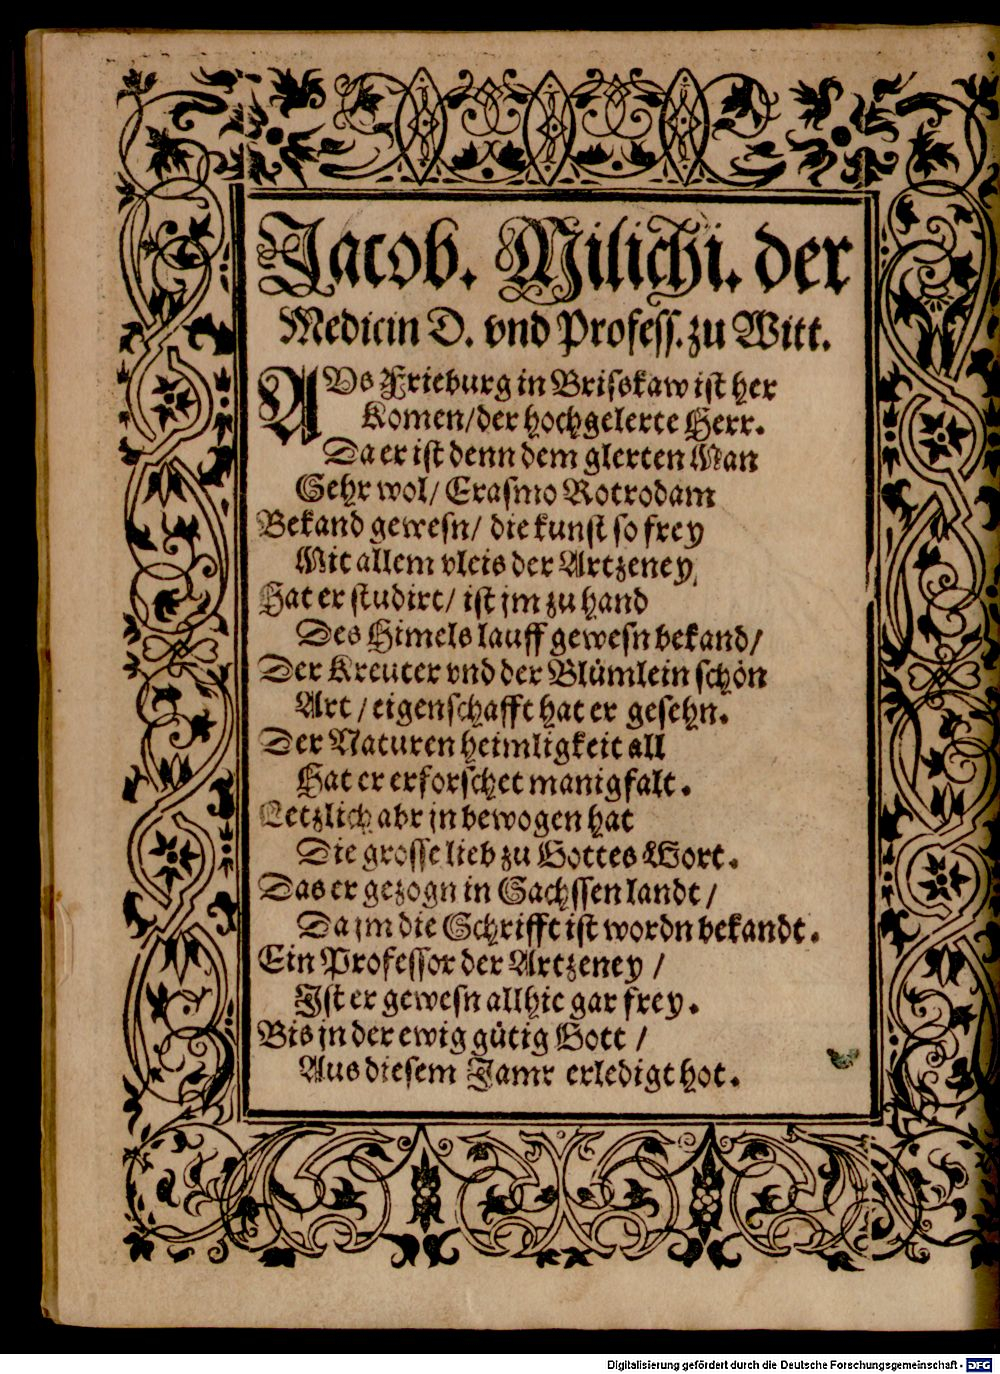 Jacob. Milichi. der
Medicin D. vnd Profess. zu Witt.
AVs Frieburg in Brisskaw ist her
Komen/der hochgelerte Herr.
Da er ist denn dem glerten Man
Sehr wol/ Erasmo Rotrodam
Bekand gewesn/ die kunst so frey
Mit allem vleis der Artzeney
Hat er studirt/ ist jm zu hand
Des Himels lauff gewesn bekand/
Der Kreuter vnd der Blümlein schön
Art/ eigenschafft hat er gesehn.
Der Naturen heimligkeit all
Hat er erforschet manigfalt.
Letzlich abr jn bewogen hat
Die grosse lieb zu Gottes Wort.
Das er gezogn in Sachssen landt/
Da jm die Schrifft ist wordn bekandt.
Ein Professor der Artzeney/
Ist er gewesn allhie gar frey.
Bis jn der ewig gütig Gott/
Aus diesem Jamr erledigt hot.
Digitalisierung gefördert durch die Deutsche Forschungsgemeinschaft - DFG